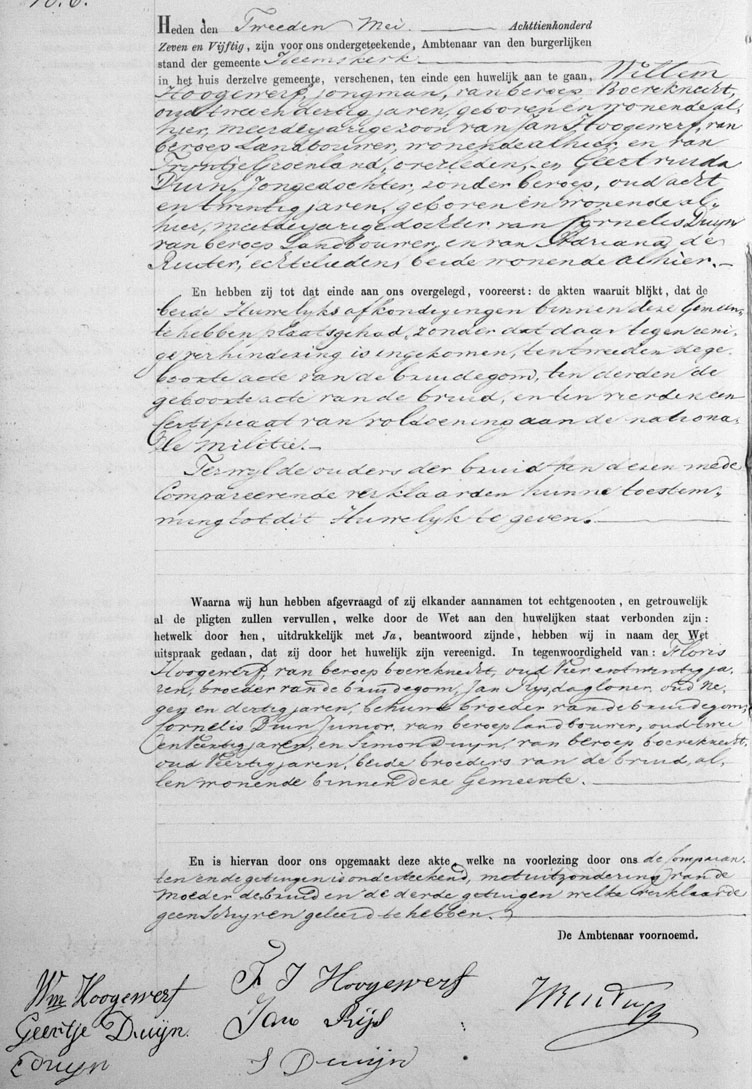 No. 6.
Heden den Tweeden Mei Achttienhonderd
Zeven en Vijftig, zijn voor ons ondergeteekende, Ambtenaar van den burgerlijken
stand der gemeente Heemskerk
in het huis derzelve gemeente, verschenen, ten einde een huwelijk aan te gaan, Willem
Hoogewerf, jongman, van beroep Boereknecht,
oud twee en dertig jaren, geboren en wonende al-
hier, meerderjarige zoon van Jan Hoogewerf, van
beroep Landbouwer, wonende alhier en van
Trijntje Groenland, overleden, en Geertruida
Duin, Jongedochter, zonder beroep, oud acht
en twintig jaren, geboren en wonende al-
hier, meerderjarige dochter van Cornelis Duijn
van beroep Landbouwer, en van Adriana de
Ruiter, echtelieden, beide wonende alhier.
En hebben zij tot dat einde aan ons overgelegd, vooreerst: de akten waaruit blijkt, dat de
beide Huwelijks afkondigingen binnen deze Gemeen-
te hebben plaats gehad, zonder dat daar tegen eeni-
ge verhindering is ingekomen, ten tweeden de ge-
boorte acte van de bruidegom, ten derden de
geboorte acte van de bruid, en ten vierden een
Certificaat van voldoening aan de nationa-
le Militie.
Terwyl de ouders der bruid ten dezen mede
Compareerende verklaarden hunne toestem-
ming tot dit Huwelyk te geven.
Waarna wij hun hebben afgevraagd of zij elkander aannamen tot echtgenooten, en getrouwelijk
al de pligten zullen vervullen, welke door de Wet aan den huwelijken staat verbonden zijn:
hetwelk door hen, uitdrukkelijk met Ja, beantwoord zijnde, hebben wij in naam der Wet
uitspraak gedaan, dat zij door het huwelijk zijn vereenigd. In tegenwoordigheid van: Floris
Hoogewerf, van beroep boereknecht, oud Vier en twintig ja-
ren, broeder van de bruidegom, Jan Rijs dagloner, oud Ne-
gen en dertig jaren, behuwd broeder van de bruidegom,
Cornelis Duin Junior, van beroep landbouwer, oud twee
en Veertig jaren, en Simon Duijn, van beroep boereknecht,
oud Veertig jaren, beide broeders van de bruid, al-
len wonende binnen deze Gemeente.
En is hiervan door ons opgemaakt deze akte, welke na voorlezing door ons de Comparan-
ten en de getuigen is onderteekend, met uitzondering van de
Moeder de bruid en de derde getuigen welke verklaarde
geen Schrijven geleerd te hebben.
De Ambtenaar voornoemd.
Wm Hoogewerf
Geertje Duijn.
C Duijn
F J Hoogewerf
Jan Rijs
S Duijn